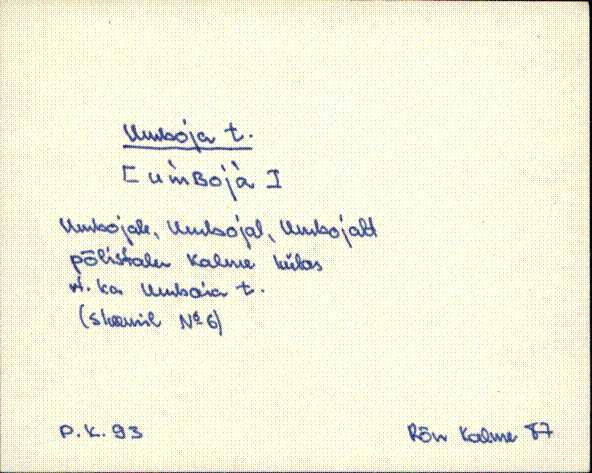 Umboja t.
[um̀Bojà]
Umbojale, Umbojal, Umbojalt
põlistalu Kalme külas
vt. ka Umbaia t.
(skeemil № 6)
P.K. 93
Rõu Kalme 87